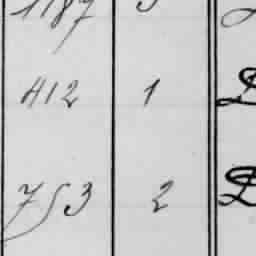 1187
412 1 D
753 2 D